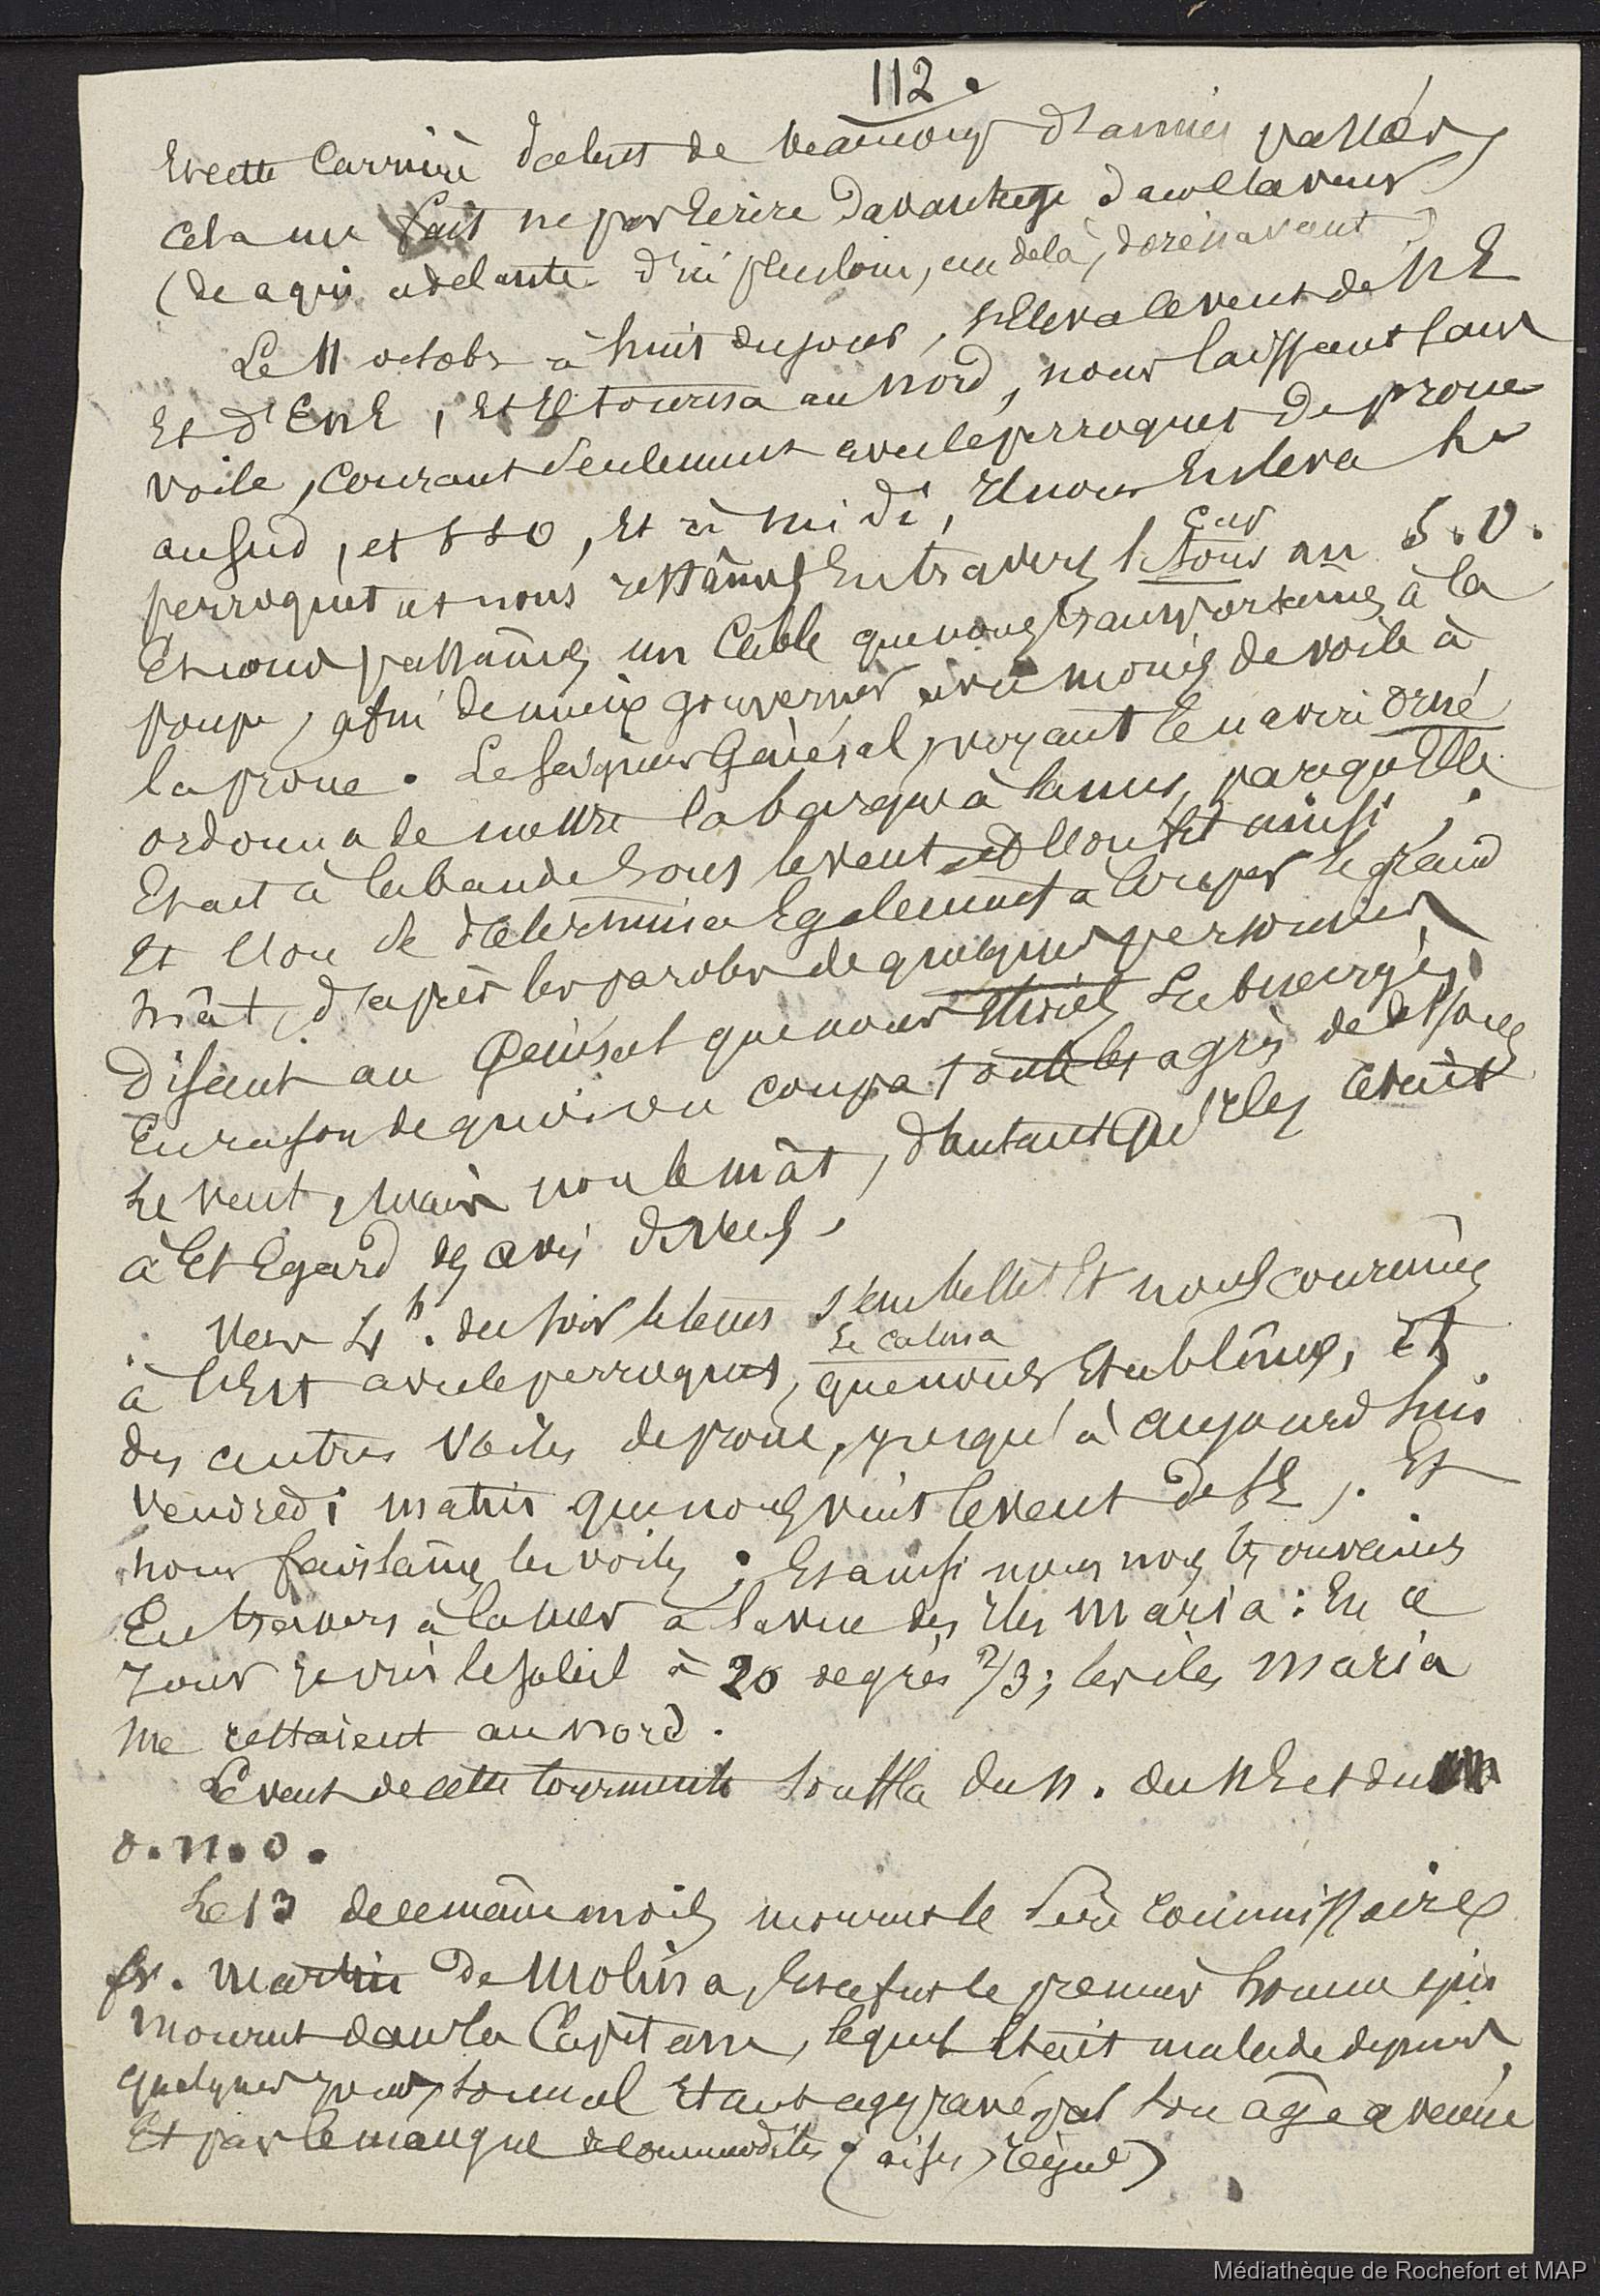 112.
Et cette carrière date de beaucoup d'années passées
cela me fait ne pas écrire davantage
(de aqui adelante d'ici plus loin, au delà, dorénavant)
Le 11 octobr à huit du jour, s'éleva le vent de NE
Et d'ENE, Et il tourna au nord, nous laissant sans
voile, courant seulement avec le perroquet de proue
au sud, et SSO, Et à midi, il nous enleva le
perroquet et nous restâmes en travers le
cap
sous au S.O.
Et nous passâmes un cable que nous transportâmes à la
poupe, afin de mieux gouverner avec moins de voile à
la proue. Le seigneur Général, voyant le navire orné
ordonna de mettre la barque à la mer, parcequ'elle
était à la bande sous le vent et l'on fit ainsi;
Et l'on se détermina également à couper le grand
mât, d'après les paroles de quelques personnes,
disant au Général que nous étions submergés;
En raison de quoi on coupa tous les agrès de dessous
le vent, mais non le mât, d'autant qu'il y avait
à cet Egard des avis divers.
Vers 4h. du soir le tems s'embellit Et nous courûmes
se calma
à l'Est avec le perroquet, que nous Etablîmes, Et
des autres voiles de proue, jusqu'à aujourd'hui
vendredi matin que nous vint le vent de SE,. Et
nous les voiles; Et ainsi nous nous trouvâmes
En travers à la mer à la vue des îles Maria: En ce
jour je vis le soleil à 20 degrés 2/3; les îles Maria
me restaient au nord.
Le vent de cette tourmente souffla du N. du NE et du
O.N.O.
Le 13 de ce même mois mourut le Père Commissaire
fr. Martin de Molina, Et ce fut le premier homme qui
mourut dans la Capitane, lequel était malade depuis
quelques jours, son mal étant aggravé par son âge avancé
Et par le manque de commodités (aises, régal)
Médiathèque de Rochefort et MAP